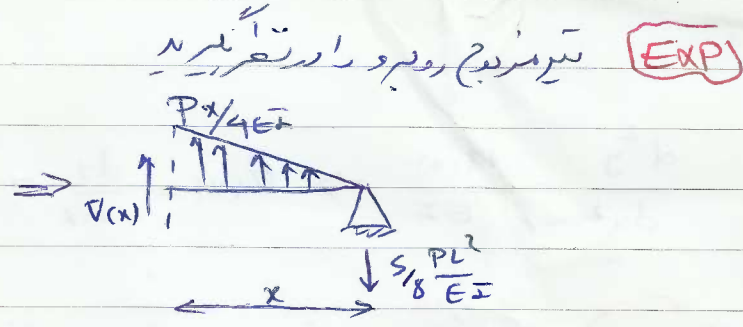 EXP تیر مزدوج روبرو را در نظر بگیرید
Px/4EI
⇒ V̄(x)
5/8 PL²/EI
x